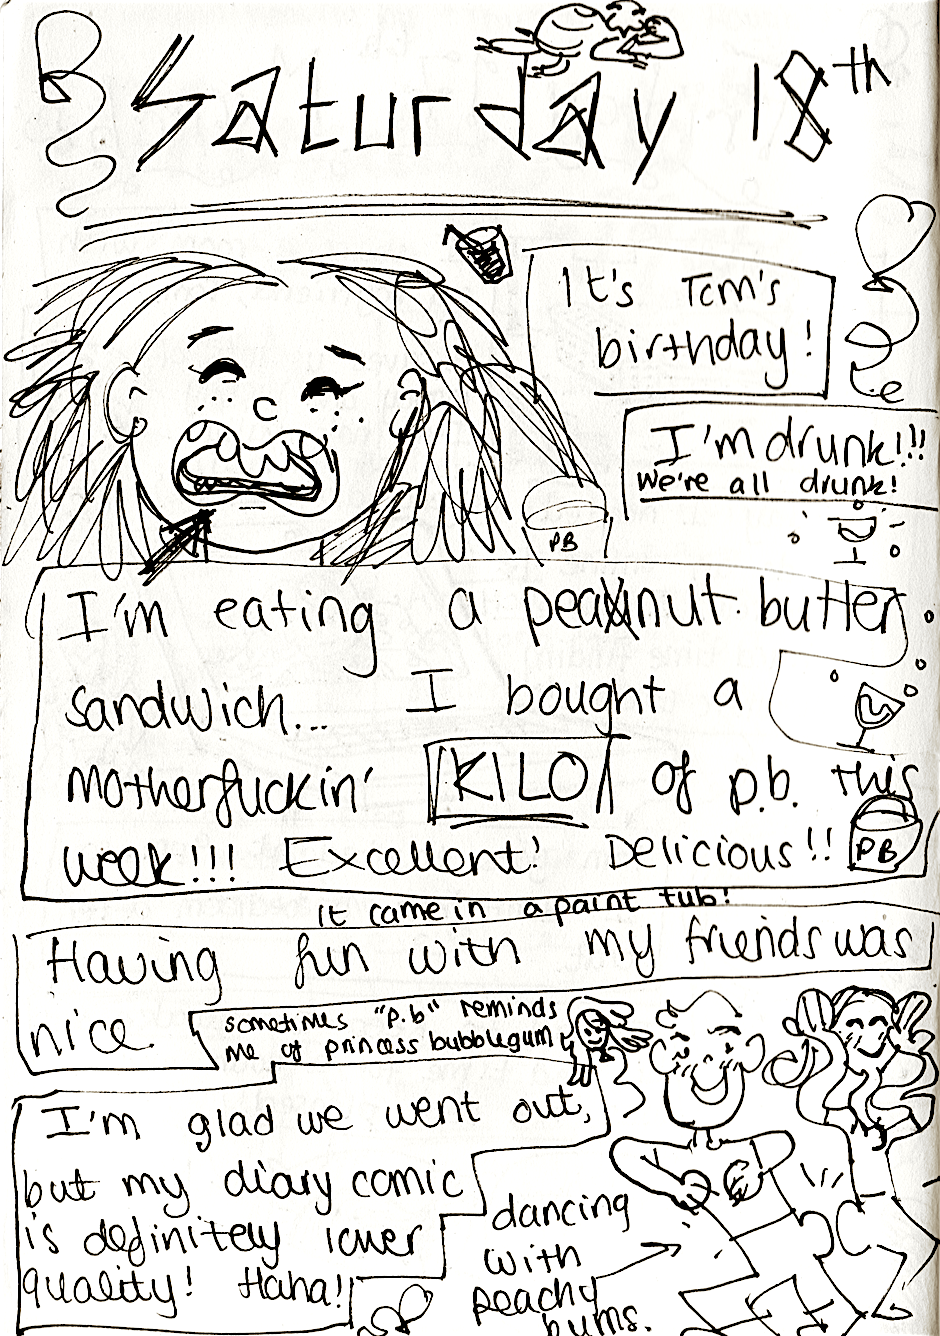 Saturday 18th
It's Tom's
birthday!
I'm drunk!!!
we're all drunk!
PB
I'm eating a peanut butter
sandwich... I bought a
motherfuckin' KILO of p.b. this
week!!! Excellent! Delicious!!
PB
it came in a paint tub!
Having fun with my friends was
nice
sometimes "p.b" reminds
me of princess bubblegum
I'm glad we went out,
but my diary comic
is definitely lower
quality! Haha!!
dancing
with
peachy
bums.